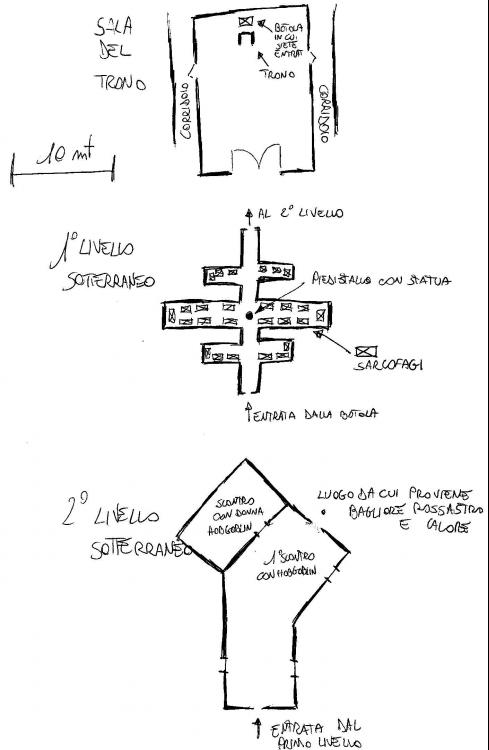 SALA
DEL
TRONO
BOTOLA
IN CUI
SIETE
ENTRATI
TRONO
CORRIDOIO
CORRIDOIO
10 mt
1° LIVELLO
SOTTERRANEO
AL 2° LIVELLO
PIEDISTALLO CON STATUA
SARCOFAGI
ENTRATA DALLA BOTOLA
2° LIVELLO
SOTTERRANEO
SCONTRO
CON DONNA
HOBGOBLIN
LUOGO DA CUI PROVIENE
BAGLIORE ROSSASTRO
E CALORE
1° SCONTRO
CON HOBGOBLIN
ENTRATA DAL
PRIMO LIVELLO